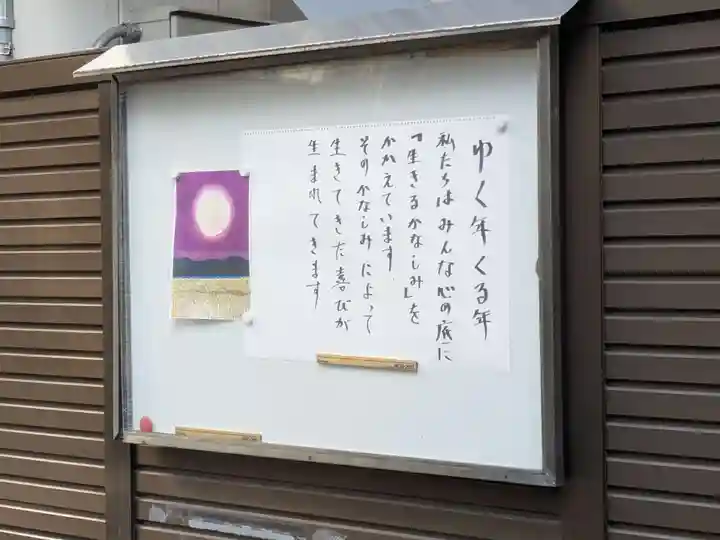 ゆく年くる年
私たちはみんな心の底に
「生きるかなしみ」を
かかえています
そのかなしみによって
生きてきた喜びが
生まれてきます